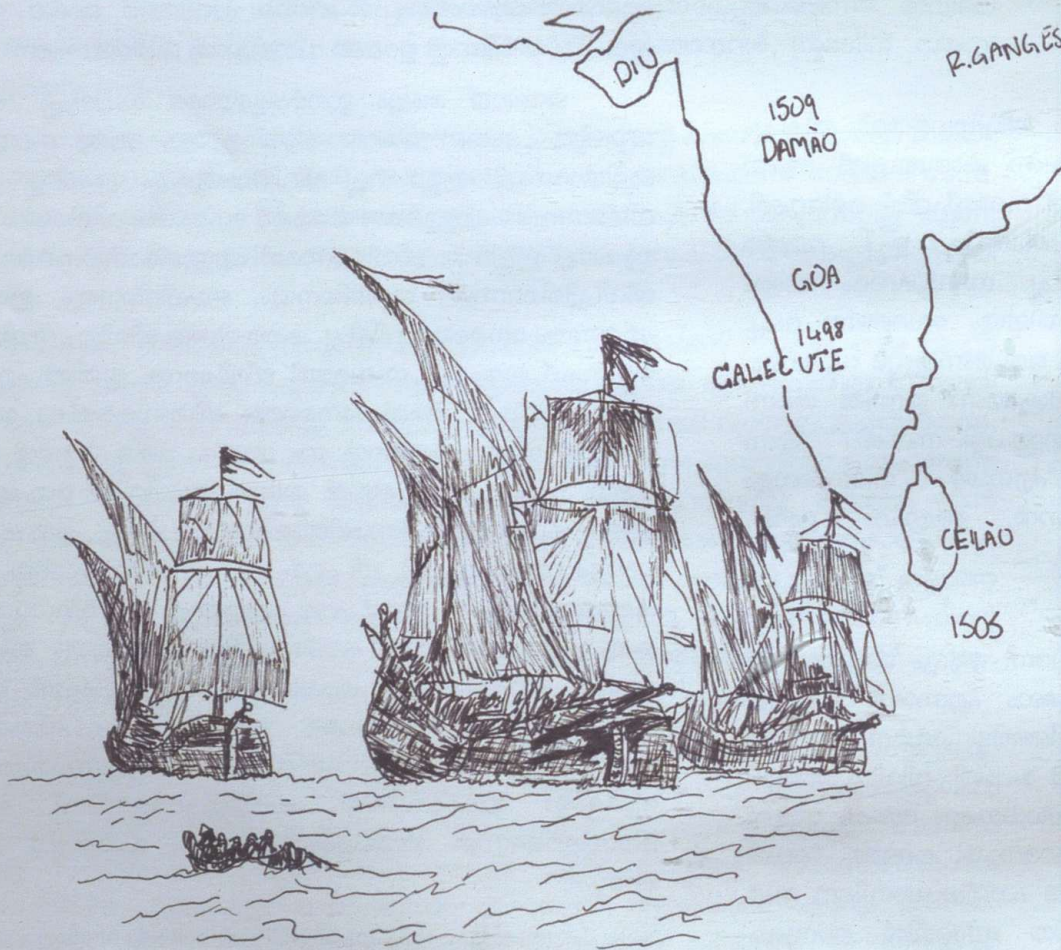 DIU
R.GANGES
1509
DAMÀO
GOA
1498
CALECUTE
CEILÀO
1505